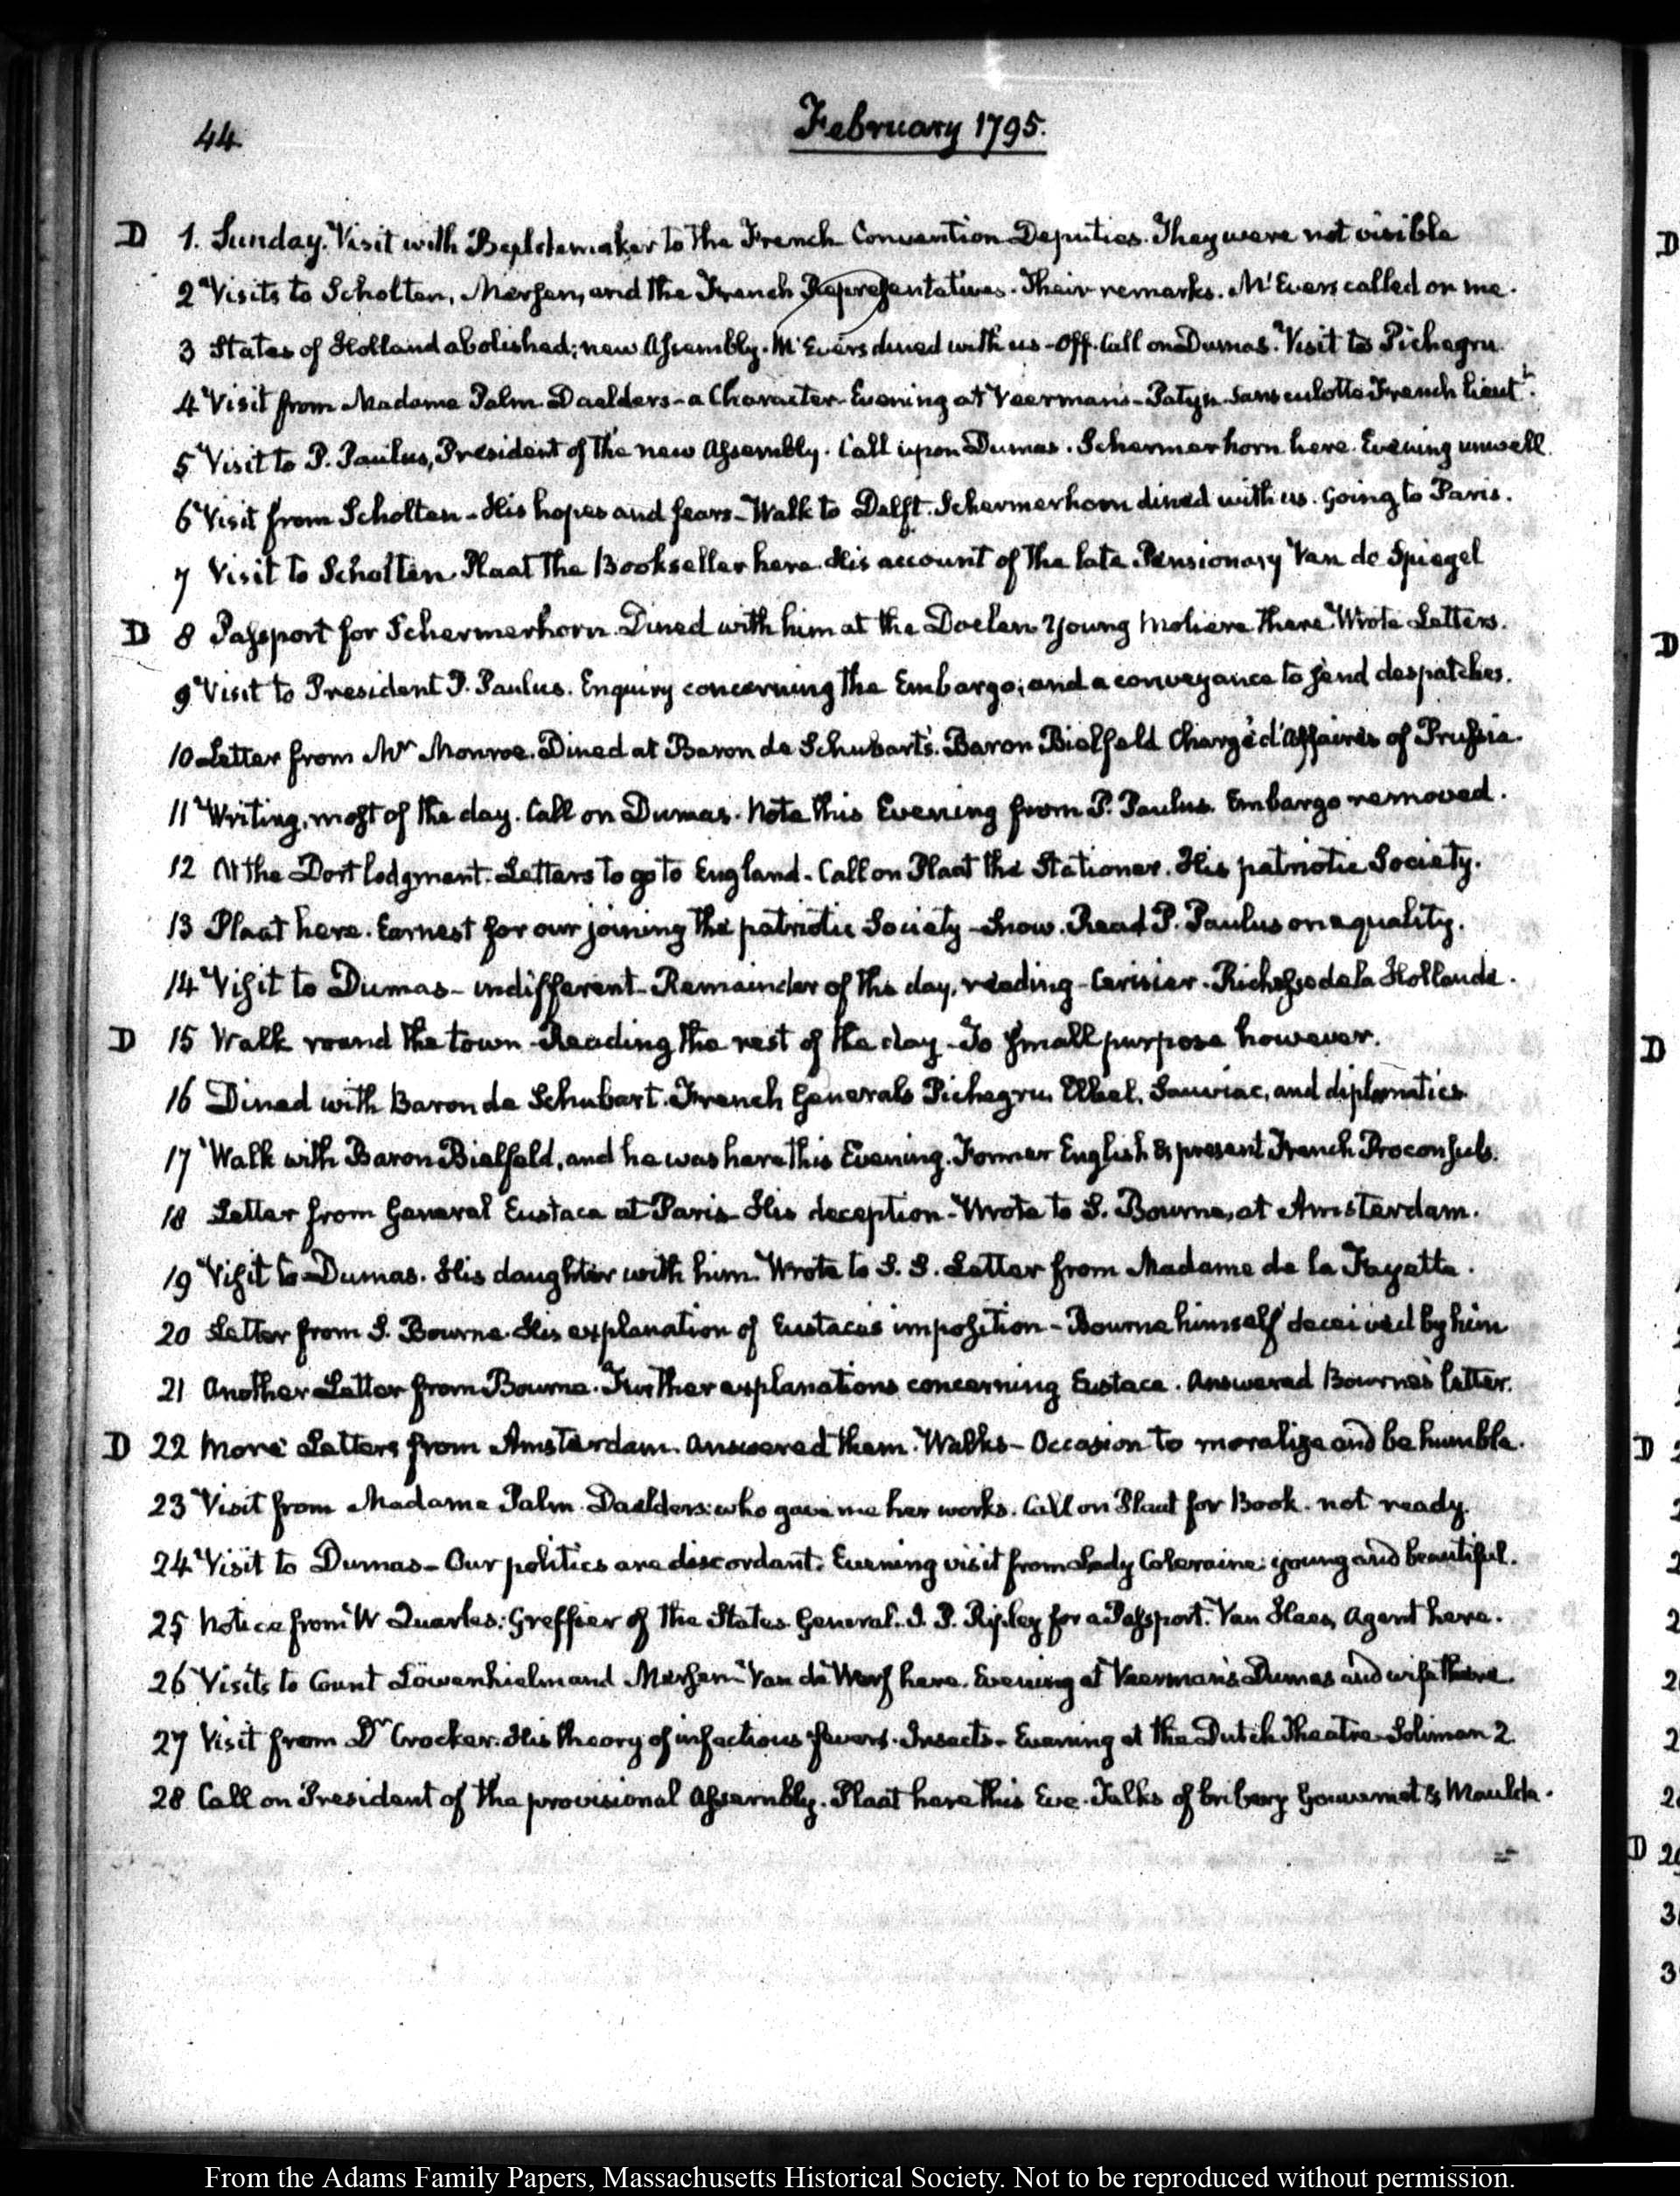 44
February 1795.
D 1. Sunday. Visit with Beeldemaker to the French Convention Deputies. They were not visible
2 Visits to Scholten, Mersen, and the French Representatives. Their remarks. McEvers called on me.
3 States of Holland abolished; new Assembly. McEvers dined with us - Off. Call on Dumas. Visit to Pichegru.
4 Visit from Madame Palm Daelders - a Character - Evening at Veerman's - Patyn. Sans culotte French Lieutt.
5 Visit to P. Paulus, President of the new Assembly. Call upon Dumas. Schermerhorn here. Evening unwell.
6 Visit from Scholten - His hopes and fears - Walk to Delft. Schermerhorn dined with us. Going to Paris.
7 Visit to Scholten. Plaat the Bookseller here. His account of the late Pensionary Van de Spiegel
D 8 Passport for Schermerhorn. Dined with him at the Doelen. Young Moliere there. Wrote Letters.
9 Visit to President P. Paulus. Enquiry concerning the Embargo; and a conveyance to send despatches.
10 Letter from Mr Monroe. Dined at Baron de Schubart's. Baron Bielfeld Chargé d'Affaires of Prussia.
11 Writing, most of the day. Call on Dumas. Note this Evening from P. Paulus. Embargo removed.
12 At the Dort lodgment. Letters to go to England. Call on Plaat the Stationer. His patriotic Society.
13 Plaat here. Earnest for our joining the patriotic Society - Snow. Read P. Paulus on equality.
14 Visit to Dumas - indifferent - Remainder of the day, reading - Cerisier. Richesse de la Hollande.
D 15 Walk round the town - Reading the rest of the day - To small purpose however.
16 Dined with Baron de Schubart. French Generals Pichegru, Elbel, Sauviac, and diplomatics
17 Walk with Baron Bielfeld, and he was here this Evening. Former English & present French Proconsuls.
18 Letter from General Eustace at Paris - His deception - Wrote to S. Bourne, at Amsterdam.
19 Visit to Dumas. His daughter with him. Wrote to S. S. Letter from Madame de la Fayette.
20 Letter from S. Bourne. His explanation of Eustace's imposition - Bourne himself deceived by him
21 Another Letter from Bourne. Further explanations concerning Eustace. Answered Bourne's letter.
D 22 More Letters from Amsterdam. Answered them. Walks - Occasion to moralize and be humble.
23 Visit from Madame Palm Daelders: who gave me her works. Call on Plaat for Book. not ready.
24 Visit to Dumas - Our politics are discordant. Evening visit from Lady Coleraine: young and beautiful.
25 Notice from W Quarles: Greffier of the States General. I. P. Ripley for a Passport. Van Haes, Agent here.
26 Visits to Count Löwenhielm and Mersen. Van de Werf here. Evening at Veerman's Dumas and wife there.
27 Visit from Dr Crocker. His theory of infectious fevers. Insects - Evening at the Dutch Theatre - Soliman 2.
28 Call on President of the provisional Assembly. Plaat here this Eve. Talks of bribery Gouvernet & Maulde.
From the Adams Family Papers, Massachusetts Historical Society. Not to be reproduced without permission.